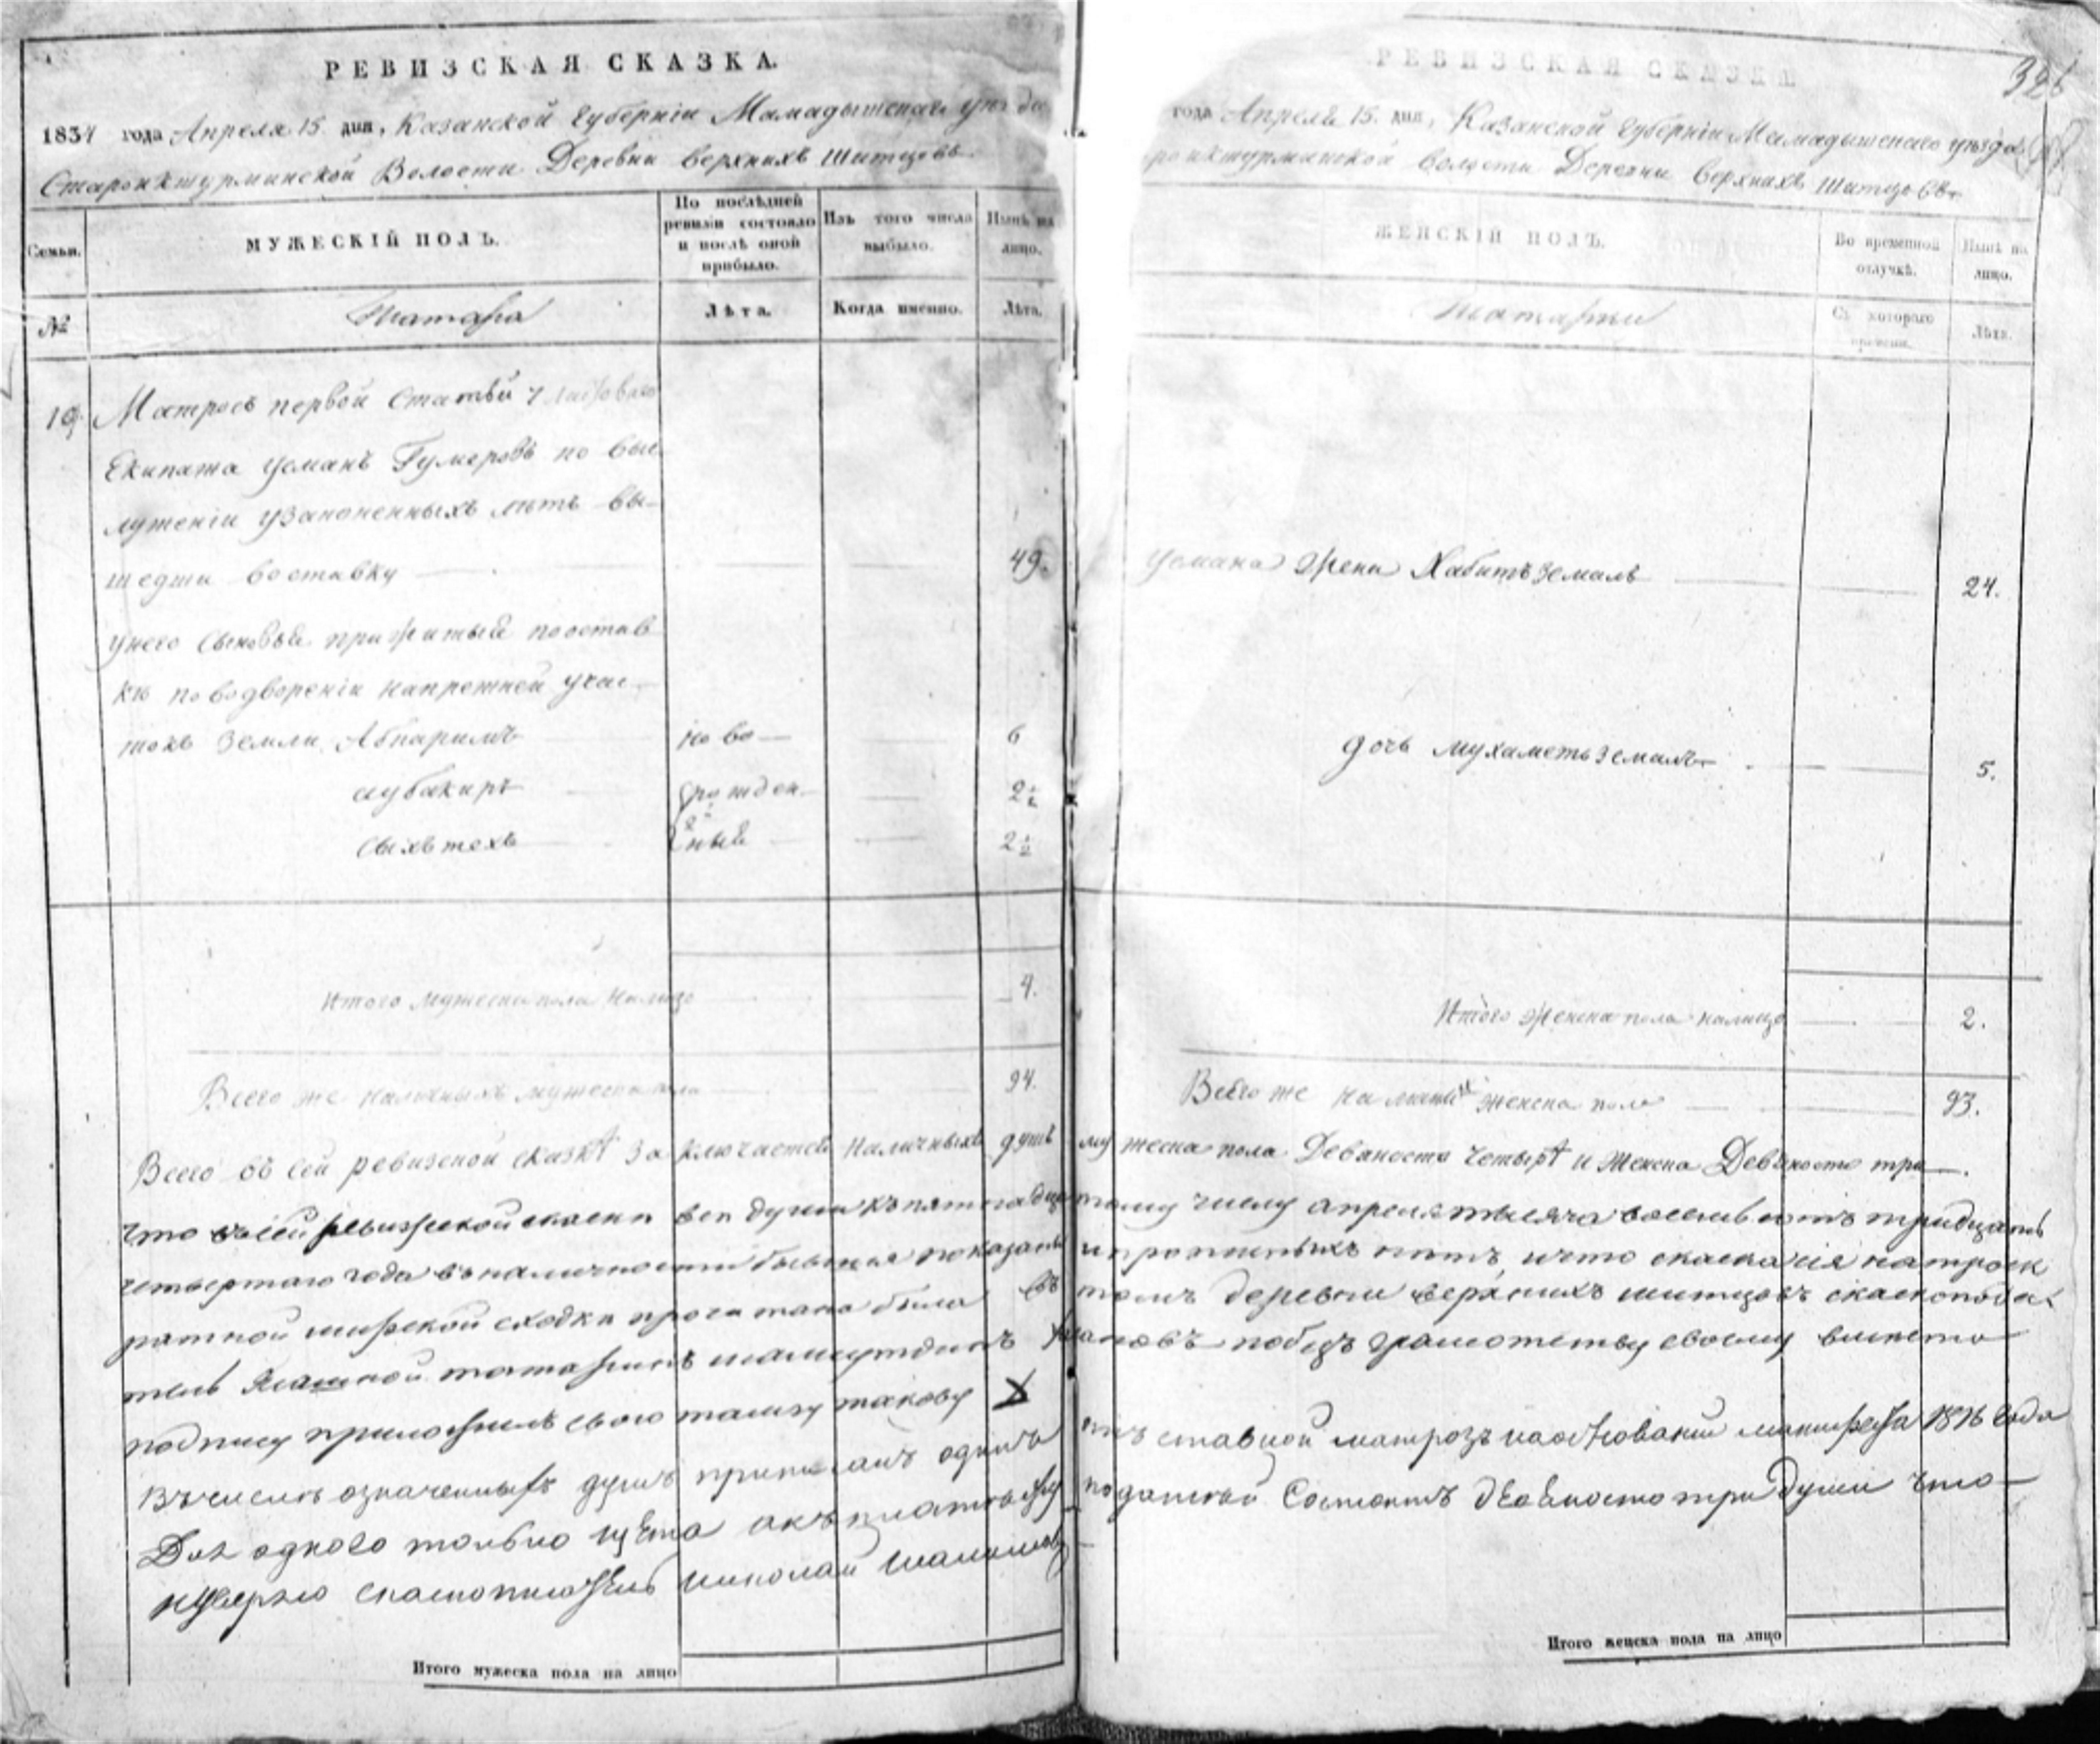 РЕВИЗСКАЯ СКАЗКА.
1834 года Апреля 15 дня, Казанской Губернiи Мамадышскаго уѣзда
Волости Деревни Верхнихъ Шитцовъ
Семьи.
МУЖЕСКIЙ ПОЛЪ.
По послѣдней ревизiи состояло и послѣ оной прибыло.
Изъ того числа выбыло.
Нынѣ на лицо.
№
Татара
Лѣта.
Когда именно.
Лѣта.
19. Матросъ первой Статьи
Екипажа Усманъ Гумеровъ по выс
луженiи узаконенныхъ лѣтъ вы-
шедши воставку 49.
Унего Сыновьи прижитыи поостав
кѣ поводворенiи напрежней учас-
токъ Земли Абкаримъ ново 6
абубакиръ рожден 2 1/2
ный 2 1/2
Итого Мужеска пола Налицо 4.
Всего же наличныхъ мужеска пола 94.
РЕВИЗСКАЯ СКАЗКА
326
года Апреля 15. дня, Казанской Губернiи Мамадышскаго уѣзда
Волости Деревни Верхнихъ Шитцовъ
ЖЕНСКIЙ ПОЛЪ.
Во временной отлучкѣ.
Нынѣ на лицо.
Татарки
Съ котораго времени.
Лѣта.
Усмана Жена Хабитъземалъ 24.
дочь Мухаметьземалъ 5.
Итого Женска пола налицо 2.
Всего же наличныхъ женска пола 93.
Всего въ сей ревизской сказкѣ заключается Наличныхъ душъ мужеска пола Девяносто Четырѣ и Женска Девяносто три.
что въсей ревизской скаски веп души къпятнадцатому числу апреля тысяча восемьсотъ тридцать
четвертаго года въналичности показаны ичто скаска сiя натроек
ратной мирской сходки прочитана была въ томъ деревни верхнихъ шитцовъ скаскопода-
тель татаринъ побезъ грамотству своему вместо
подписи приложилъ свою тамгу такову
Въчислѣ означенныхъ душъ приписанъ одинъ отставной матрозъ наосновании манифеста 18 6 года
Для одного только щета Состоитъ девяносто три души что
Николай
Итого мужеска пола на лицо
Итого женска пола на лицо